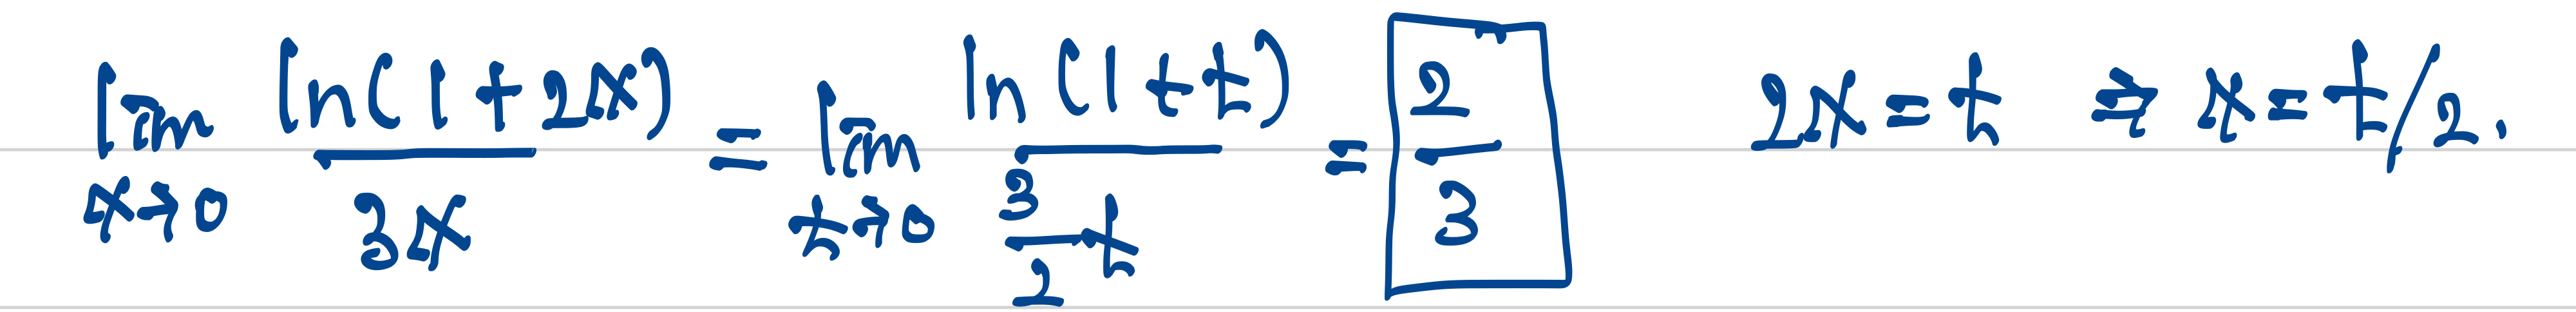 lim x→0 ln(1+2x)/3x = lim t→0 ln(1+t)/(3/2 t) = 2/3 2x = t ⇒ x = t/2.